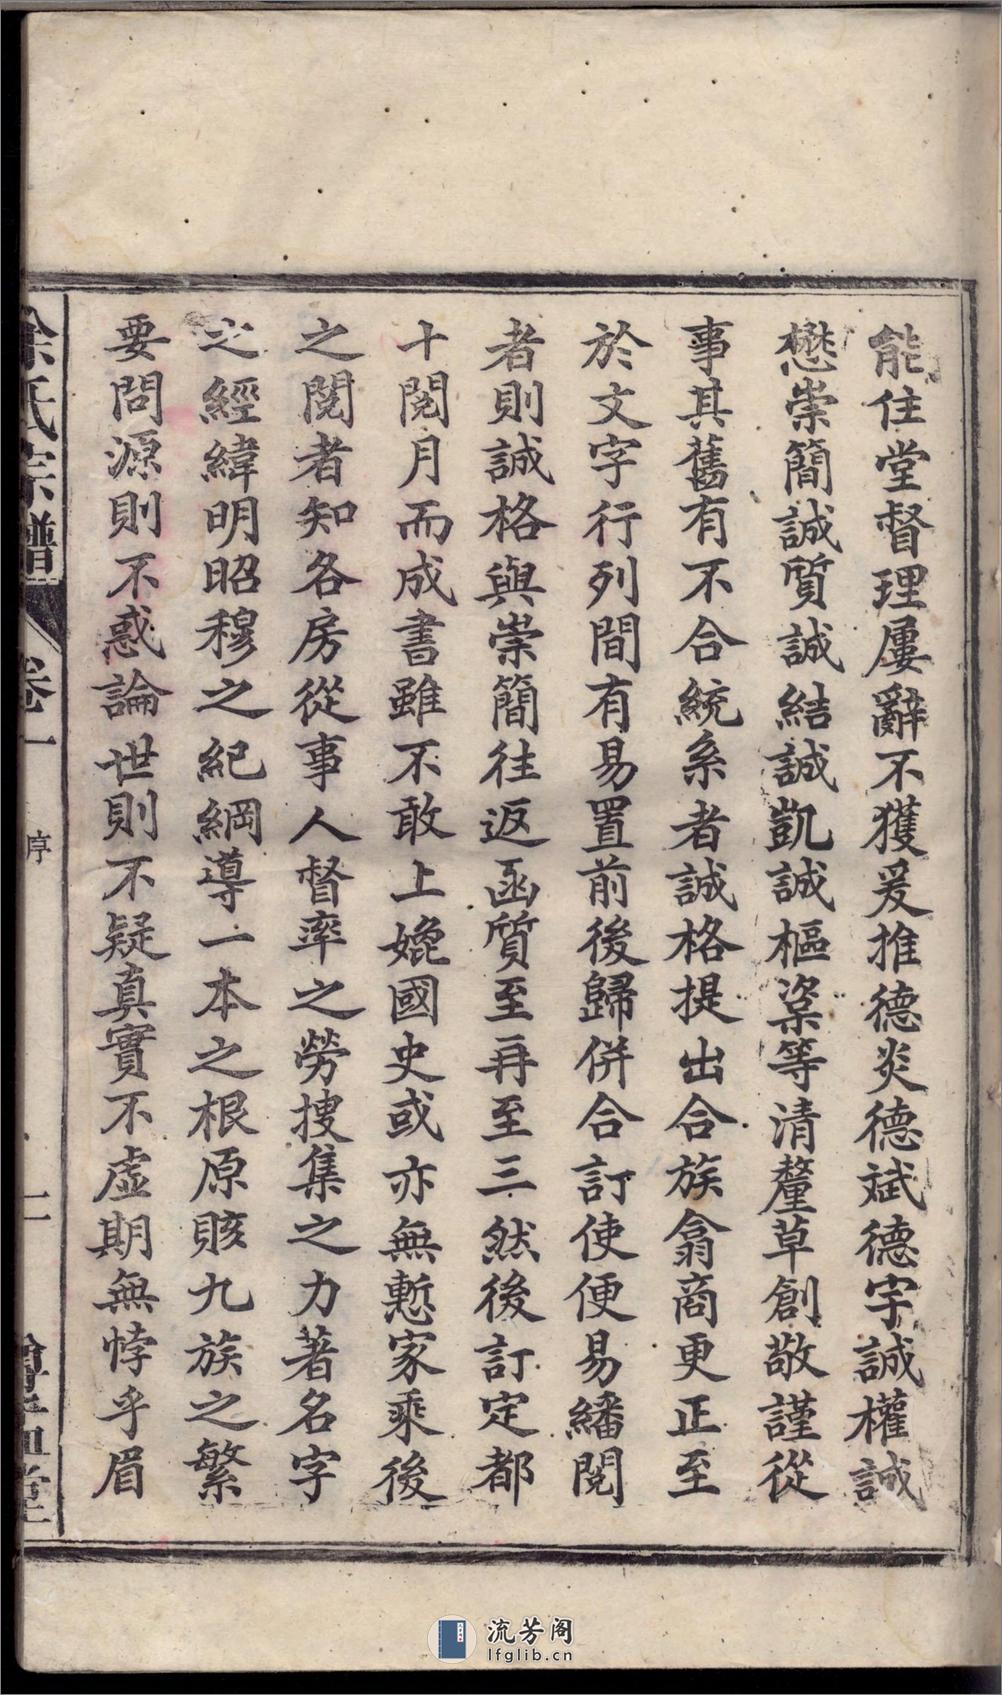 能住堂督理屢辭不獲爰推德炎德斌德宇誠權誠
懋崇簡誠質誠結誠凱誠樞粢等清釐草創敬謹從
事其舊有不合統系者誠格提出合族翕商更正至
於文字行列間有易置前後歸併合訂使便易繙閱
者則誠格與崇簡往返函質至再至三然後訂定都
十閱月而成書雖不敢上媲國史或亦無慙家乘後
之閱者知各房從事人督率之勞搜集之力著名字
之經緯明昭穆之紀綱導一本之根原賅九族之繁
要問源則不惑論世則不疑真實不虛期無悖乎眉
氏宗譜
卷一
序
流芳阁
lfglib.cn